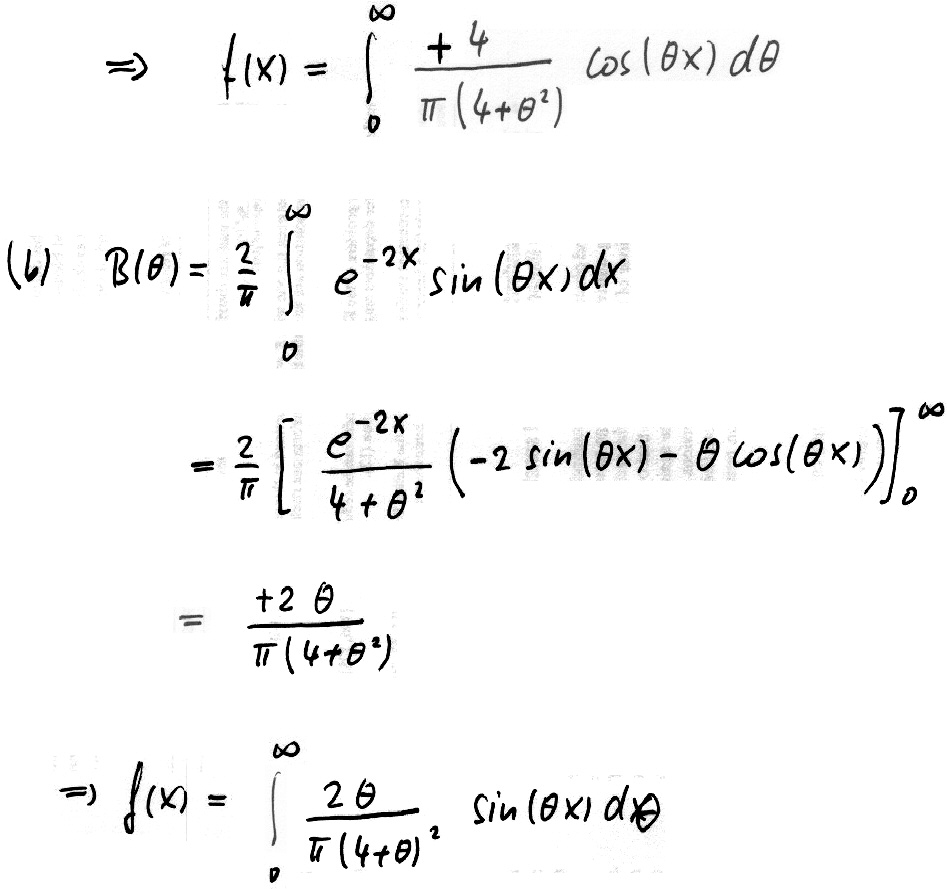 ⇒ f(x) = ∫₀^∞ +4 / π(4+θ²) cos(θx) dθ
(b) B(θ) = 2/π ∫₀^∞ e^{-2x} sin(θx) dx
= 2/π [ e^{-2x} / 4+θ² (-2 sin(θx) - θ cos(θx)) ]₀^∞
= +2θ / π(4+θ²)
⇒ f(x) = ∫₀^∞ 2θ / π(4+θ)² sin(θx) dθ